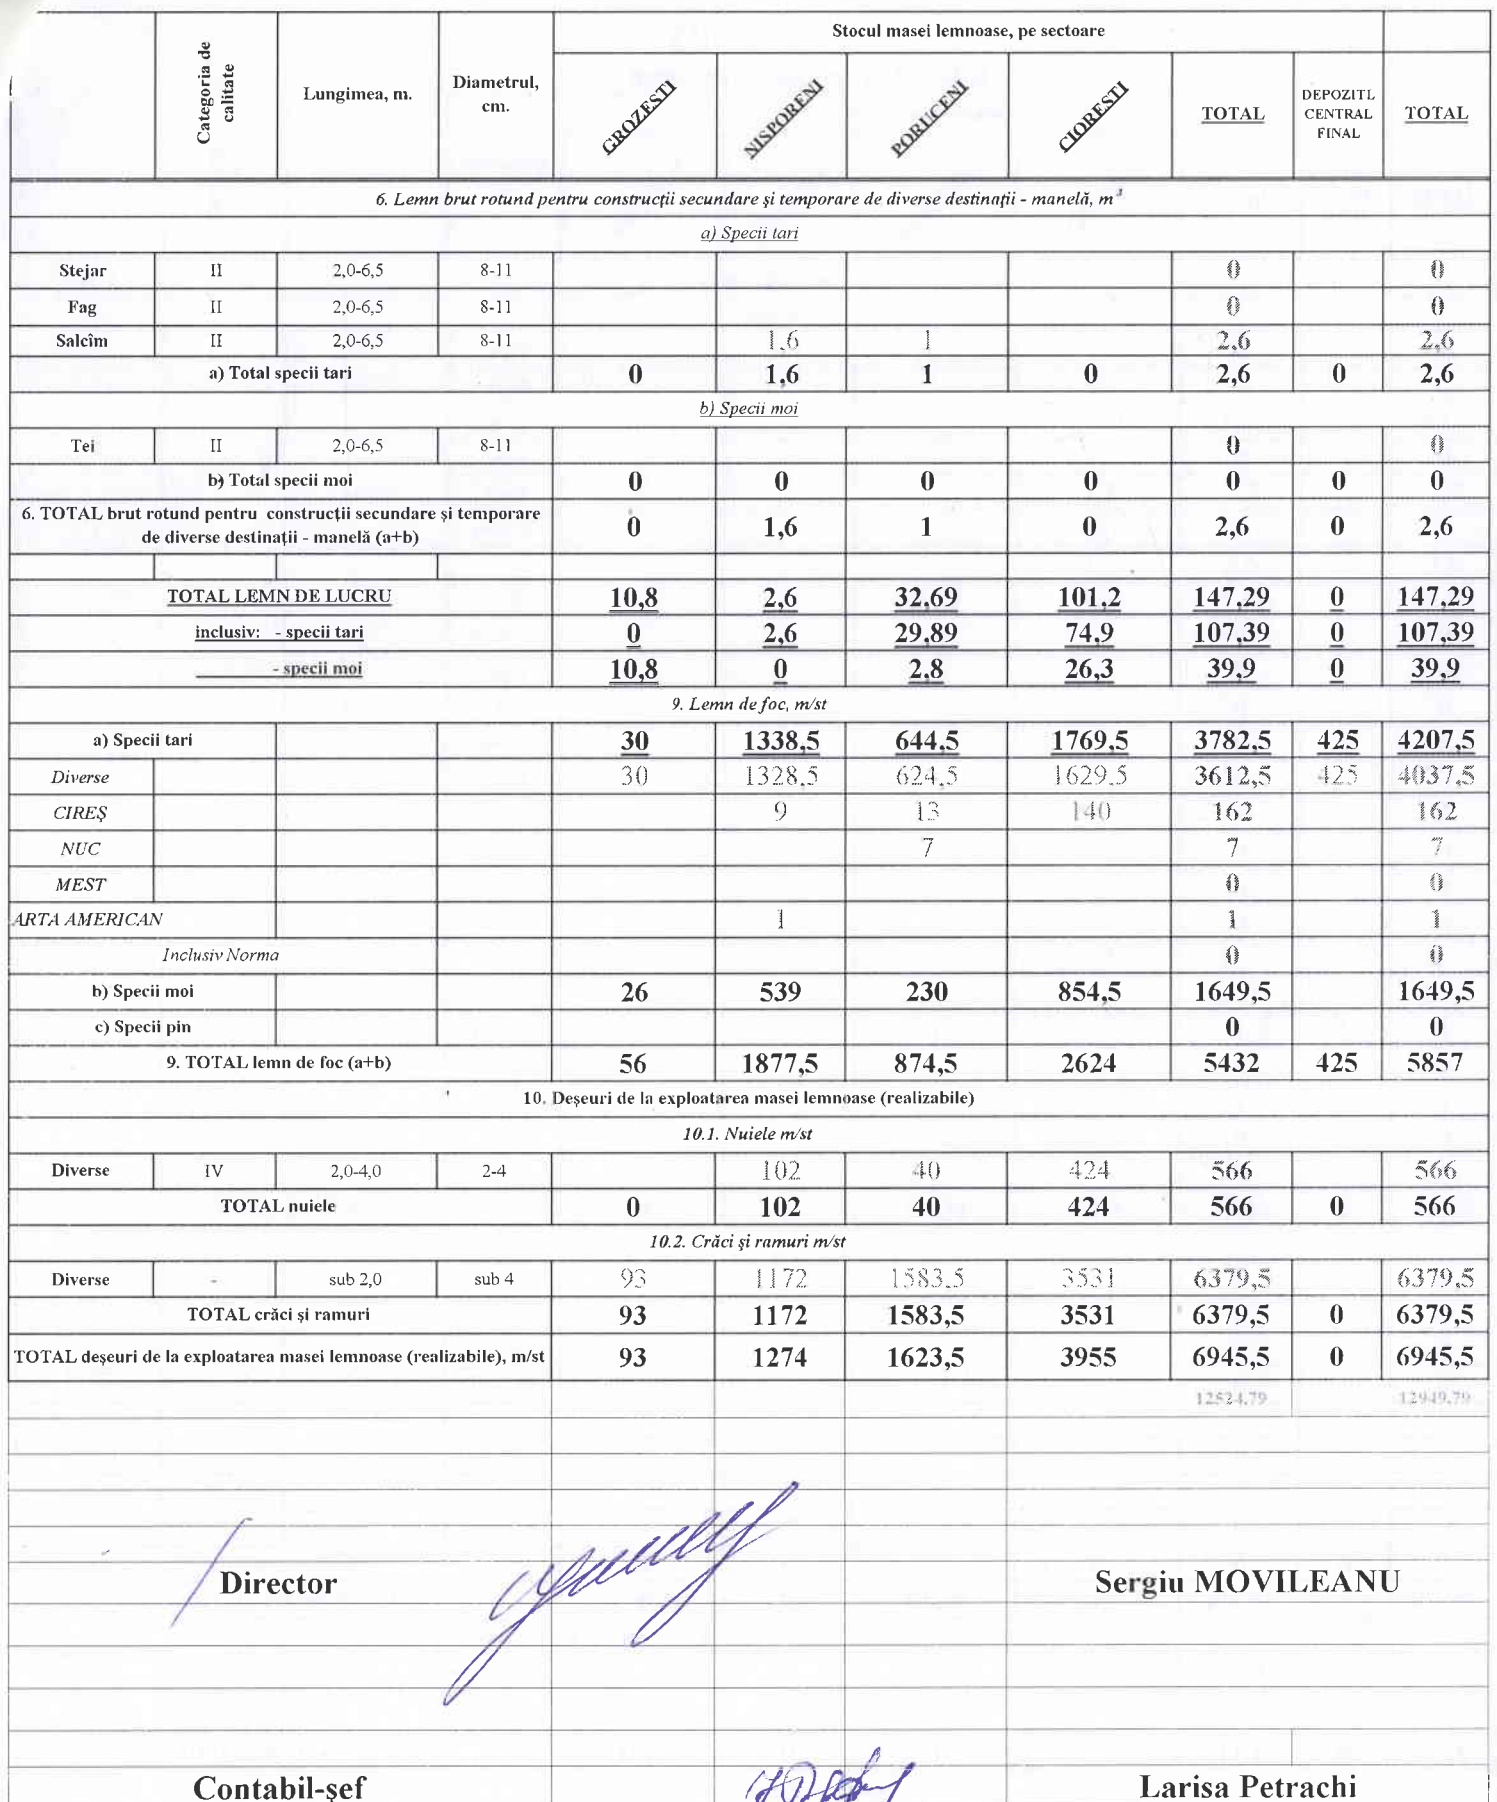 Stocul masei lemnoase, pe sectoare
Categoria de calitate | Lungimea, m. | Diametrul, cm. | GROZESTI | NISPORENI | PORUCENI | CIORESTI | TOTAL | DEPOZITL CENTRAL FINAL | TOTAL
6. Lemn brut rotund pentru construcţii secundare şi temporare de diverse destinaţii - manelă, m³
a) Specii tari
Stejar | II | 2,0-6,5 | 8-11 | 0 | 0
Fag | II | 2,0-6,5 | 8-11 | 0 | 0
Salcîm | II | 2,0-6,5 | 8-11 | 1,6 | 1 | 2,6 | 2,6
a) Total specii tari | 0 | 1,6 | 1 | 0 | 2,6 | 0 | 2,6
b) Specii moi
Tei | II | 2,0-6,5 | 8-11 | 0 | 0
b) Total specii moi | 0 | 0 | 0 | 0 | 0 | 0 | 0
6. TOTAL brut rotund pentru construcţii secundare şi temporare
de diverse destinaţii - manelă (a+b) | 0 | 1,6 | 1 | 0 | 2,6 | 0 | 2,6
TOTAL LEMN DE LUCRU | 10,8 | 2,6 | 32,69 | 101,2 | 147,29 | 0 | 147,29
inclusiv: - specii tari | 0 | 2,6 | 29,89 | 74,9 | 107,39 | 0 | 107,39
- specii moi | 10,8 | 0 | 2,8 | 26,3 | 39,9 | 0 | 39,9
9. Lemn de foc, m/st
a) Specii tari | 30 | 1338,5 | 644,5 | 1769,5 | 3782,5 | 425 | 4207,5
Diverse | 30 | 1328,5 | 624,5 | 1629,5 | 3612,5 | 425 | 4037,5
CIREŞ | 9 | 13 | 140 | 162 | 162
NUC | 7 | 7 | 7
MEST | 0 | 0
ARTA AMERICAN | 1 | 1 | 1
Inclusiv Norma | 0 | 0
b) Specii moi | 26 | 539 | 230 | 854,5 | 1649,5 | 1649,5
c) Specii pin | 0 | 0
9. TOTAL lemn de foc (a+b) | 56 | 1877,5 | 874,5 | 2624 | 5432 | 425 | 5857
10. Deşeuri de la exploatarea masei lemnoase (realizabile)
10.1. Nuiele m/st
Diverse | IV | 2,0-4,0 | 2-4 | 102 | 40 | 424 | 566 | 566
TOTAL nuiele | 0 | 102 | 40 | 424 | 566 | 0 | 566
10.2. Crăci şi ramuri m/st
Diverse | - | sub 2,0 | sub 4 | 93 | 1172 | 1583,5 | 3531 | 6379,5 | 6379,5
TOTAL crăci şi ramuri | 93 | 1172 | 1583,5 | 3531 | 6379,5 | 0 | 6379,5
TOTAL deşeuri de la exploatarea masei lemnoase (realizabile), m/st | 93 | 1274 | 1623,5 | 3955 | 6945,5 | 0 | 6945,5
12524,79 | 12949,79
Director | Sergiu MOVILEANU
Contabil-şef | Larisa Petrachi